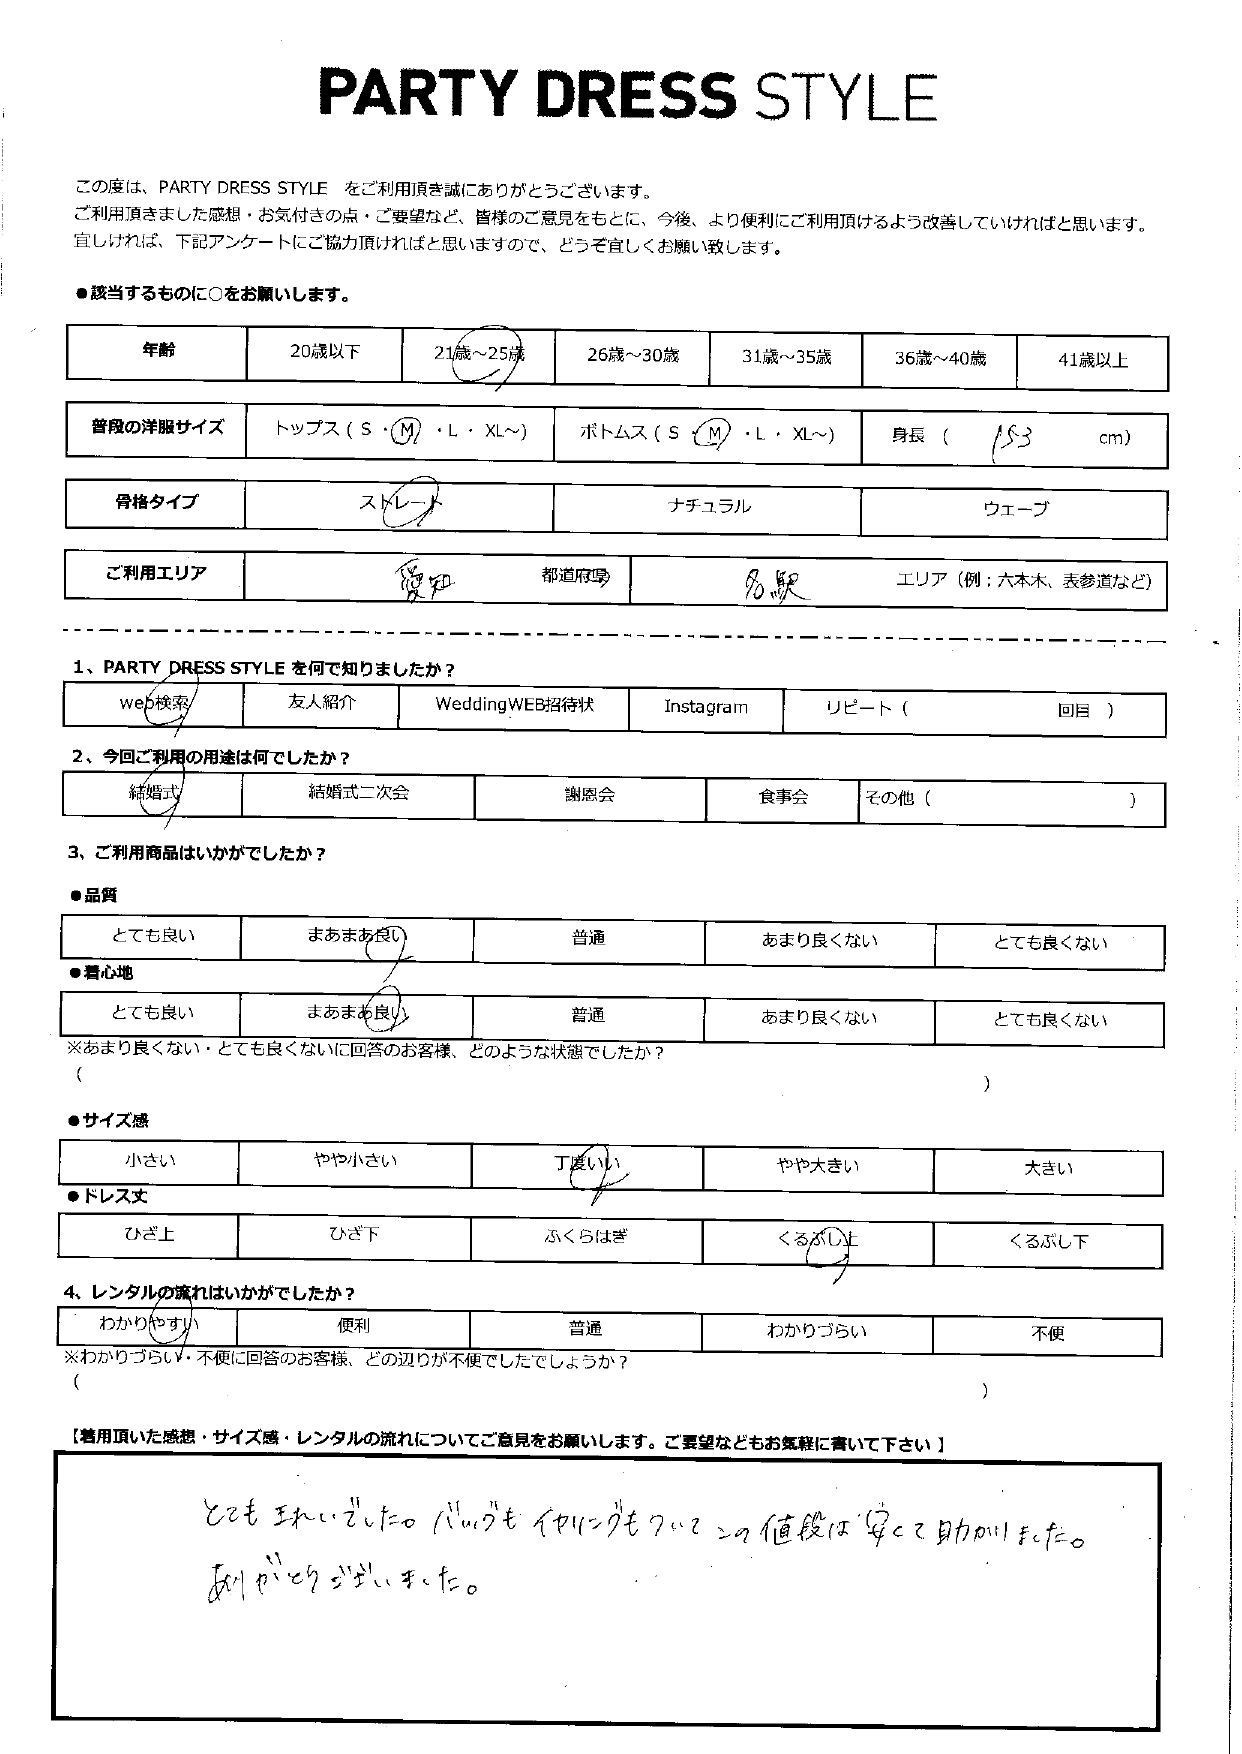 PARTY DRESS STYLE
この度は、PARTY DRESS STYLE をご利用頂き誠にありがとうございます。
ご利用頂きました感想・お気付きの点・ご要望など、皆様のご意見をもとに、今後、より便利にご利用頂けるよう改善していければと思います。
宜しければ、下記アンケートにご協力頂ければと思いますので、どうぞ宜しくお願い致します。
●該当するものに○をお願いします。
年齢 20歳以下 21歳～25歳 26歳～30歳 31歳～35歳 36歳～40歳 41歳以上
普段の洋服サイズ トップス ( S ・ M ・ L ・ XL～) ボトムス ( S ・ M ・ L ・ XL～) 身長 ( 153 cm)
骨格タイプ ストレート ナチュラル ウェーブ
ご利用エリア 愛知 都道府県 名駅 エリア（例；六本木、表参道など）
1、PARTY DRESS STYLE を何で知りましたか？
web検索 友人紹介 WeddingWEB招待状 Instagram リピート ( 回目 )
2、今回ご利用の用途は何でしたか？
結婚式 結婚式二次会 謝恩会 食事会 その他 ( )
3、ご利用商品はいかがでしたか？
●品質
とても良い まあまあ良い 普通 あまり良くない とても良くない
●着心地
とても良い まあまあ良い 普通 あまり良くない とても良くない
※あまり良くない・とても良くないに回答のお客様、どのような状態でしたか？
( )
●サイズ感
小さい やや小さい 丁度いい やや大きい 大きい
●ドレス丈
ひざ上 ひざ下 ふくらはぎ くるぶし上 くるぶし下
4、レンタルの流れはいかがでしたか？
わかりやすい 便利 普通 わかりづらい 不便
※わかりづらい・不便に回答のお客様、どの辺りが不便でしたでしょうか？
( )
【着用頂いた感想・サイズ感・レンタルの流れについてご意見をお願いします。ご要望などもお気軽に書いて下さい】
とても きれいでした。バッグも イヤリングも ついて この値段は 安くて 助かりました。
ありがとうございました。